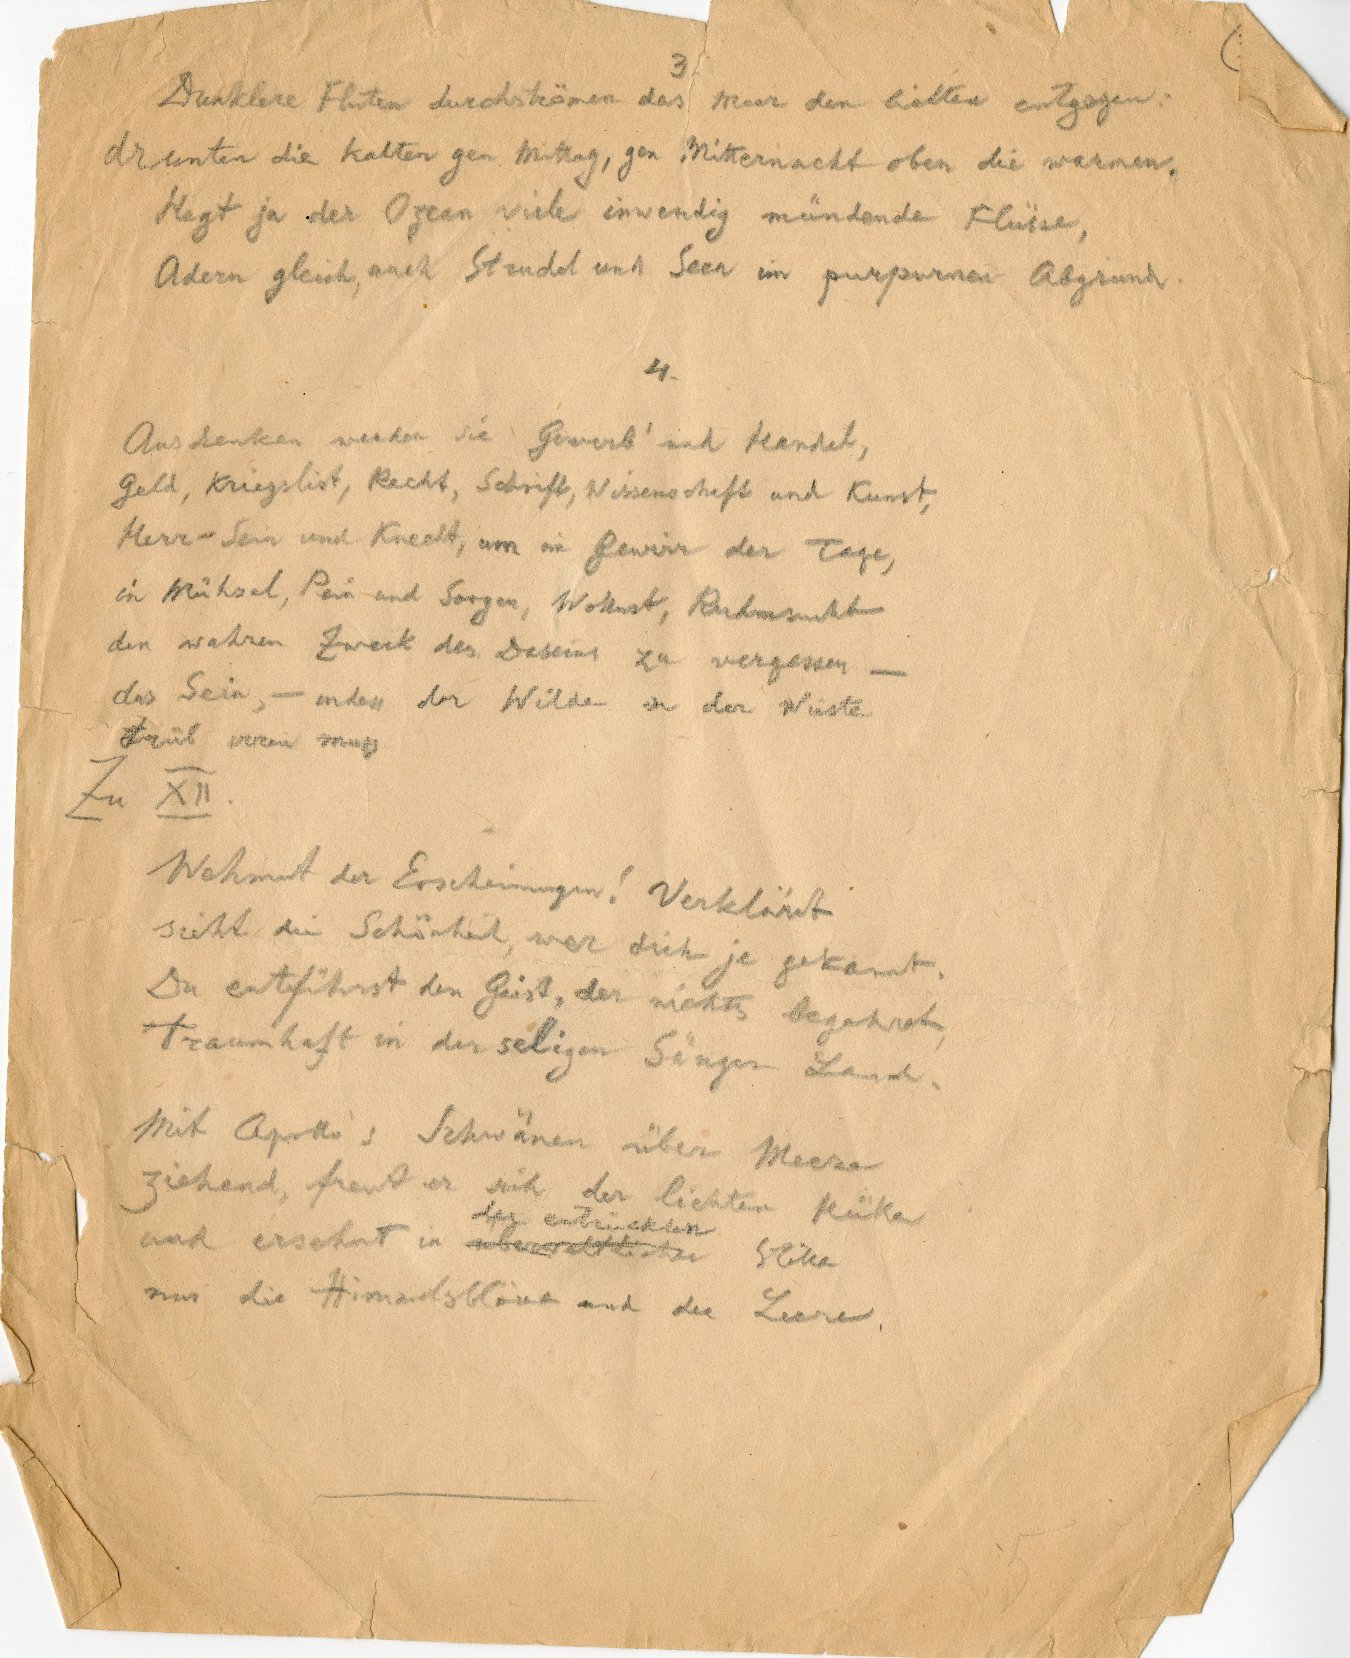 3
Dunklere Fluten durchströmen das Meer den lichten entgegen:
drunten die kalten gen Mittag, gen Mitternacht oben die warmen.
Hegt ja der Ozean viele inwendig mündende Flüsse,
Adern gleich, auch Strudel und Seen im purpurnen Abgrund.
4.
Ausdenken werden sie Gewerb' und Handel,
Geld, Kriegslist, Recht, Schrift, Wissenschaft und Kunst,
Herr-Sein und Knecht, um im Gewirr der Tage,
in Mühsal, Pein und Sorgen, Wollust, Ruhmsucht
den wahren Zweck des Daseins zu vergessen —
das Sein, — indess der Wilde in der Wüste
trüb muss
Zu XII.
Wehmut der Erscheinungen! Verklärt
sieht die Schönheit, wer dich je gekannt.
Du entführst den Geist, der nichts begehret,
traumhaft in der seligen Sänger Land.
Mit Apollo's Schwänen über Meere
ziehend, freut er sich der lichten Höhe
und ersehnt in der entrückten Stille
nur die Himmelsbläue und die Leere.